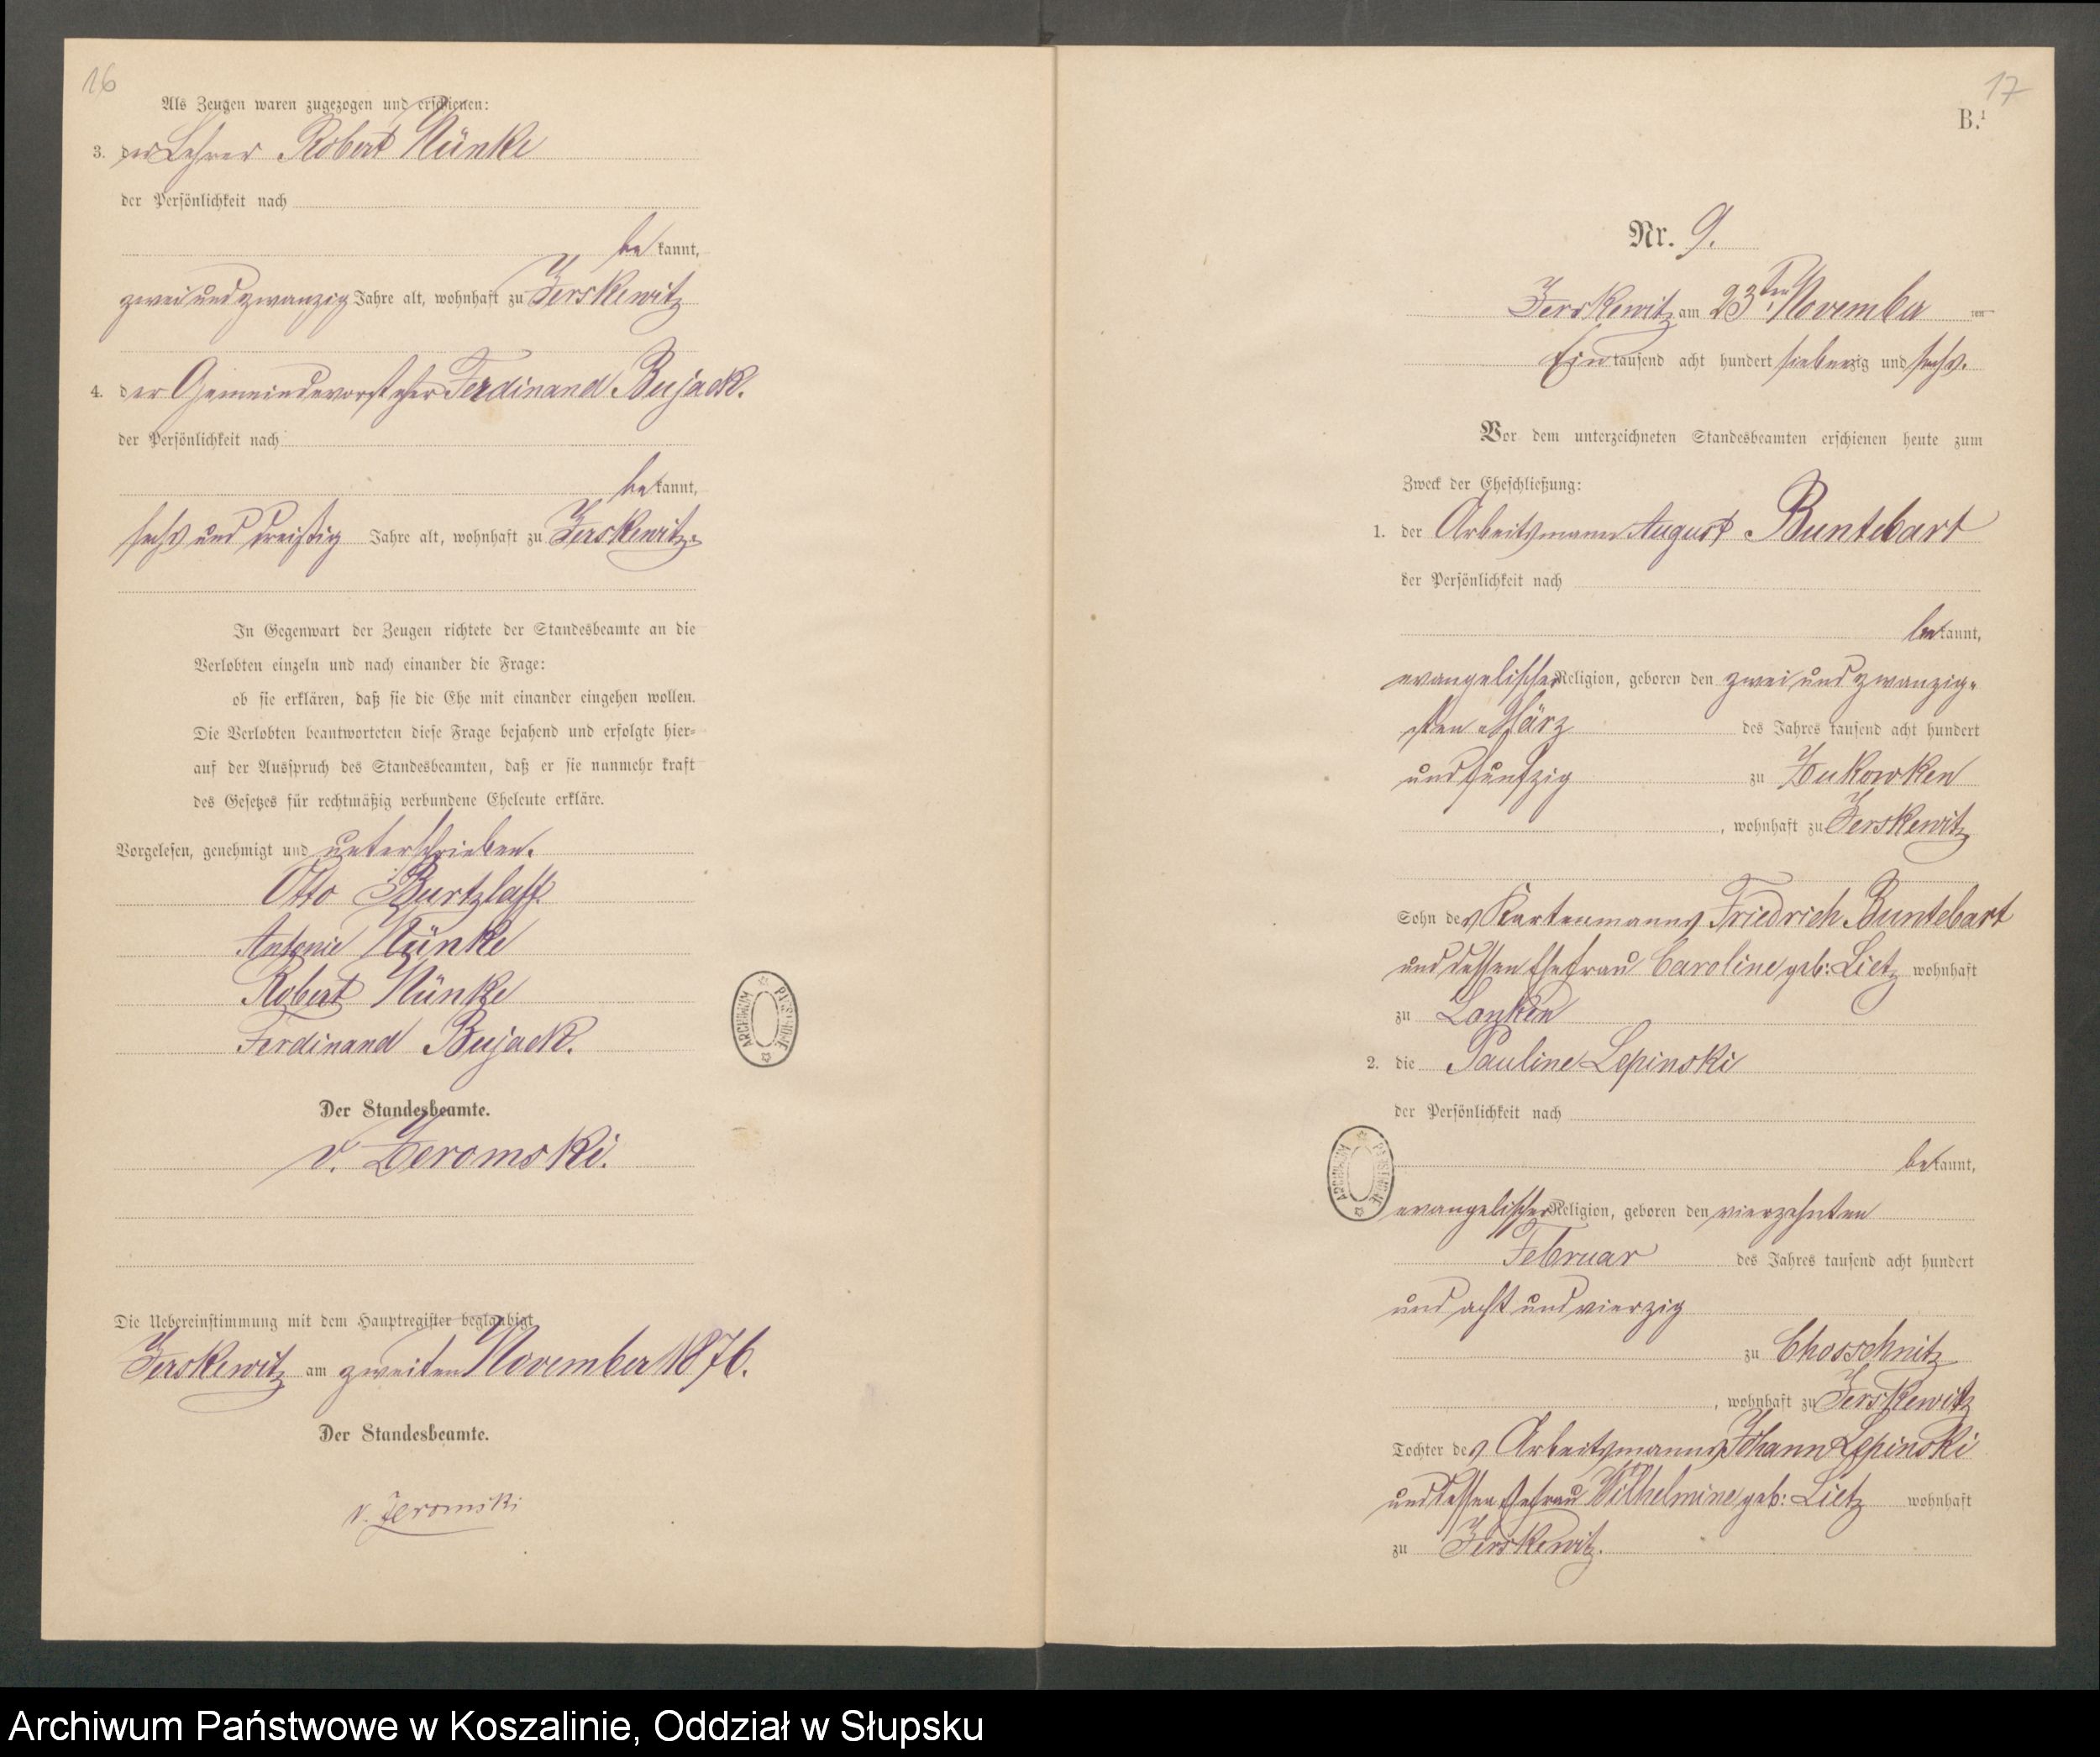 16
Als Zeugen waren zugezogen und erschienen:
3. der Lehrer Robert Nünke
der Persönlichkeit nach
bekannt,
zwei und zwanzig Jahre alt, wohnhaft zu Jerskewitz
4. der Gemeindevorsteher Ferdinand Bujack.
der Persönlichkeit nach
bekannt,
sechs und dreißig Jahre alt, wohnhaft zu Jerskewitz.
In Gegenwart der Zeugen richtete der Standesbeamte an die
Verlobten einzeln und nach einander die Frage:
ob sie erklären, daß sie die Ehe mit einander eingehen wollen.
Die Verlobten beantworteten diese Frage bejahend und erfolgte hier-
auf der Ausspruch des Standesbeamten, daß er sie nunmehr kraft
des Gesetzes für rechtmäßig verbundene Eheleute erkläre.
Vorgelesen, genehmigt und unterschrieben.
Otto Burtzlaff.
Antonie Nünke
Robert Nünke
Ferdinand Bujack.
Der Standesbeamte.
v. Zeromski.
Die Uebereinstimmung mit dem Hauptregister beglaubigt
Jerskewitz am zweiten November 1876.
Der Standesbeamte.
v. Zeromski
ARCHIWUM PAŃSTWOWE
17
B.1
Nr. 9.
Jerskewitz am 23ten November ten
Ein tausend acht hundert siebenzig und sechs.
Vor dem unterzeichneten Standesbeamten erschienen heute zum
Zweck der Eheschließung:
1. der Arbeitsmann August Buntebart
der Persönlichkeit nach
bekannt,
evangelischer Religion, geboren den zwei und zwanzig-
sten März des Jahres tausend acht hundert
und funfzig zu Zukowken
, wohnhaft zu Jerskewitz
Sohn des Friedrich Buntebart
und dessen Ehefrau Caroline geb: Lietz wohnhaft
zu Lanken
2. die Pauline Lepinski
der Persönlichkeit nach
bekannt,
ARCHIWUM PAŃSTWOWE
evangelischer Religion, geboren den vierzehnten
Februar des Jahres tausend acht hundert
und acht und vierzig
zu Chosschnitz
, wohnhaft zu Jerskewitz
Tochter des Arbeitsmanns Johann Lepinski
und dessen Ehefrau Wilhelmine geb: Lietz wohnhaft
zu Jerskewitz.
Archiwum Państwowe w Koszalinie, Oddział w Słupsku